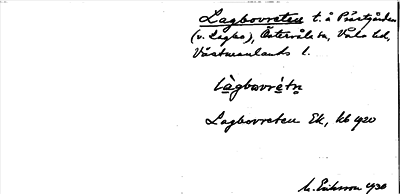 Lagbovreten t. å Prästgården
(v. Lagbo), Östervåla sn, Våla hd,
Västmanlands l.
làgbovrétn
Lagbovreten Ek, kb 1920
M. Eriksson 1930